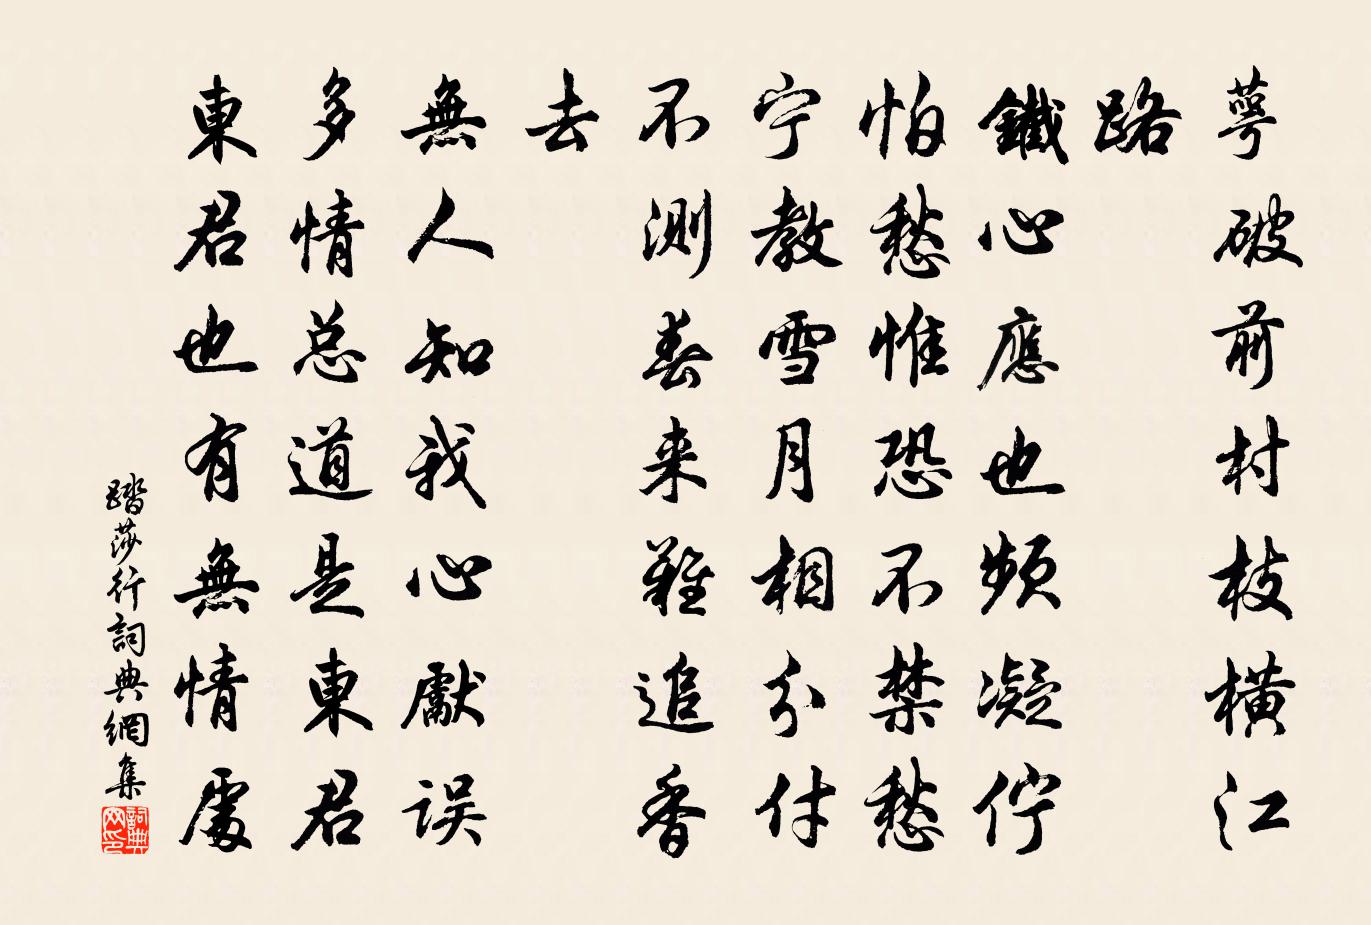 萼破前村枝橫江
路
鐵心應也頻凝佇
怕愁惟恐不禁愁
宁教雪月相分付
不測春来難追香
去
無人知我心獻误
多情总道是東君
東君也有無情處
踏莎行詞典網集
詞典网印